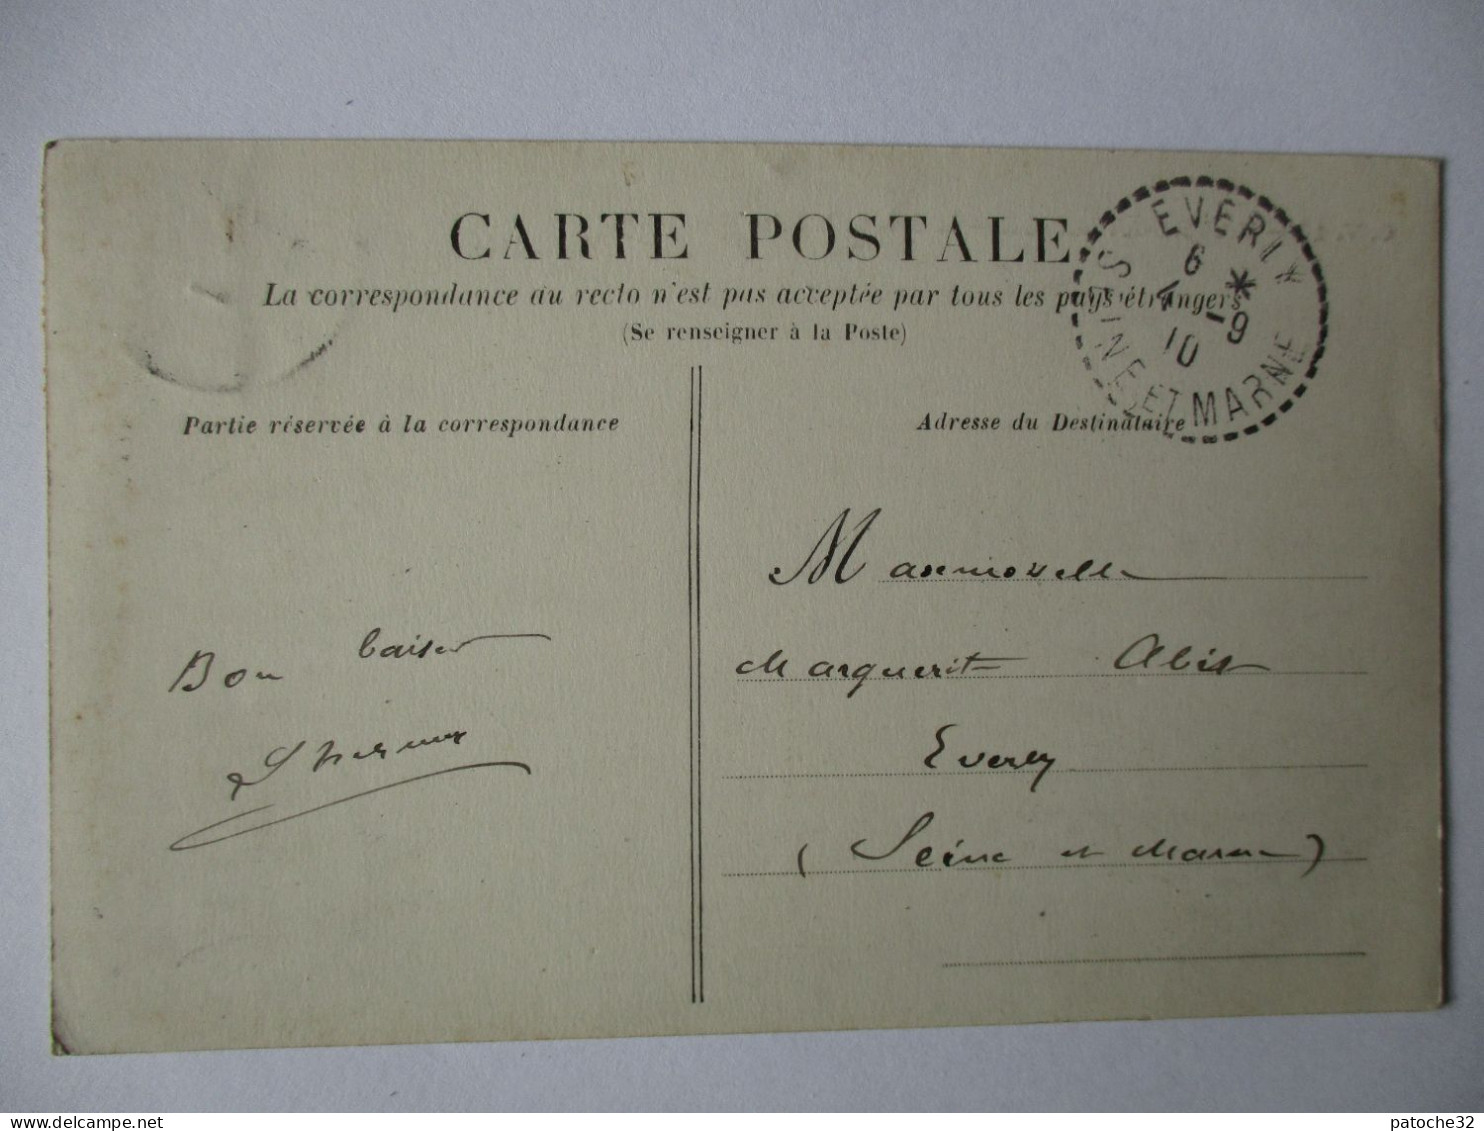 CARTE POSTALE
La correspondance au recto n'est pas acceptée par tous les pays étrangers
(Se renseigner à la Poste)
EVERLY
6 *
4 -9
10
SEINE ET MARNE
Partie réservée à la correspondance
Adresse du Destinataire
Bon baiser
Mademoiselle
Marguerite
Everly
(Seine et Marne)
patoche32